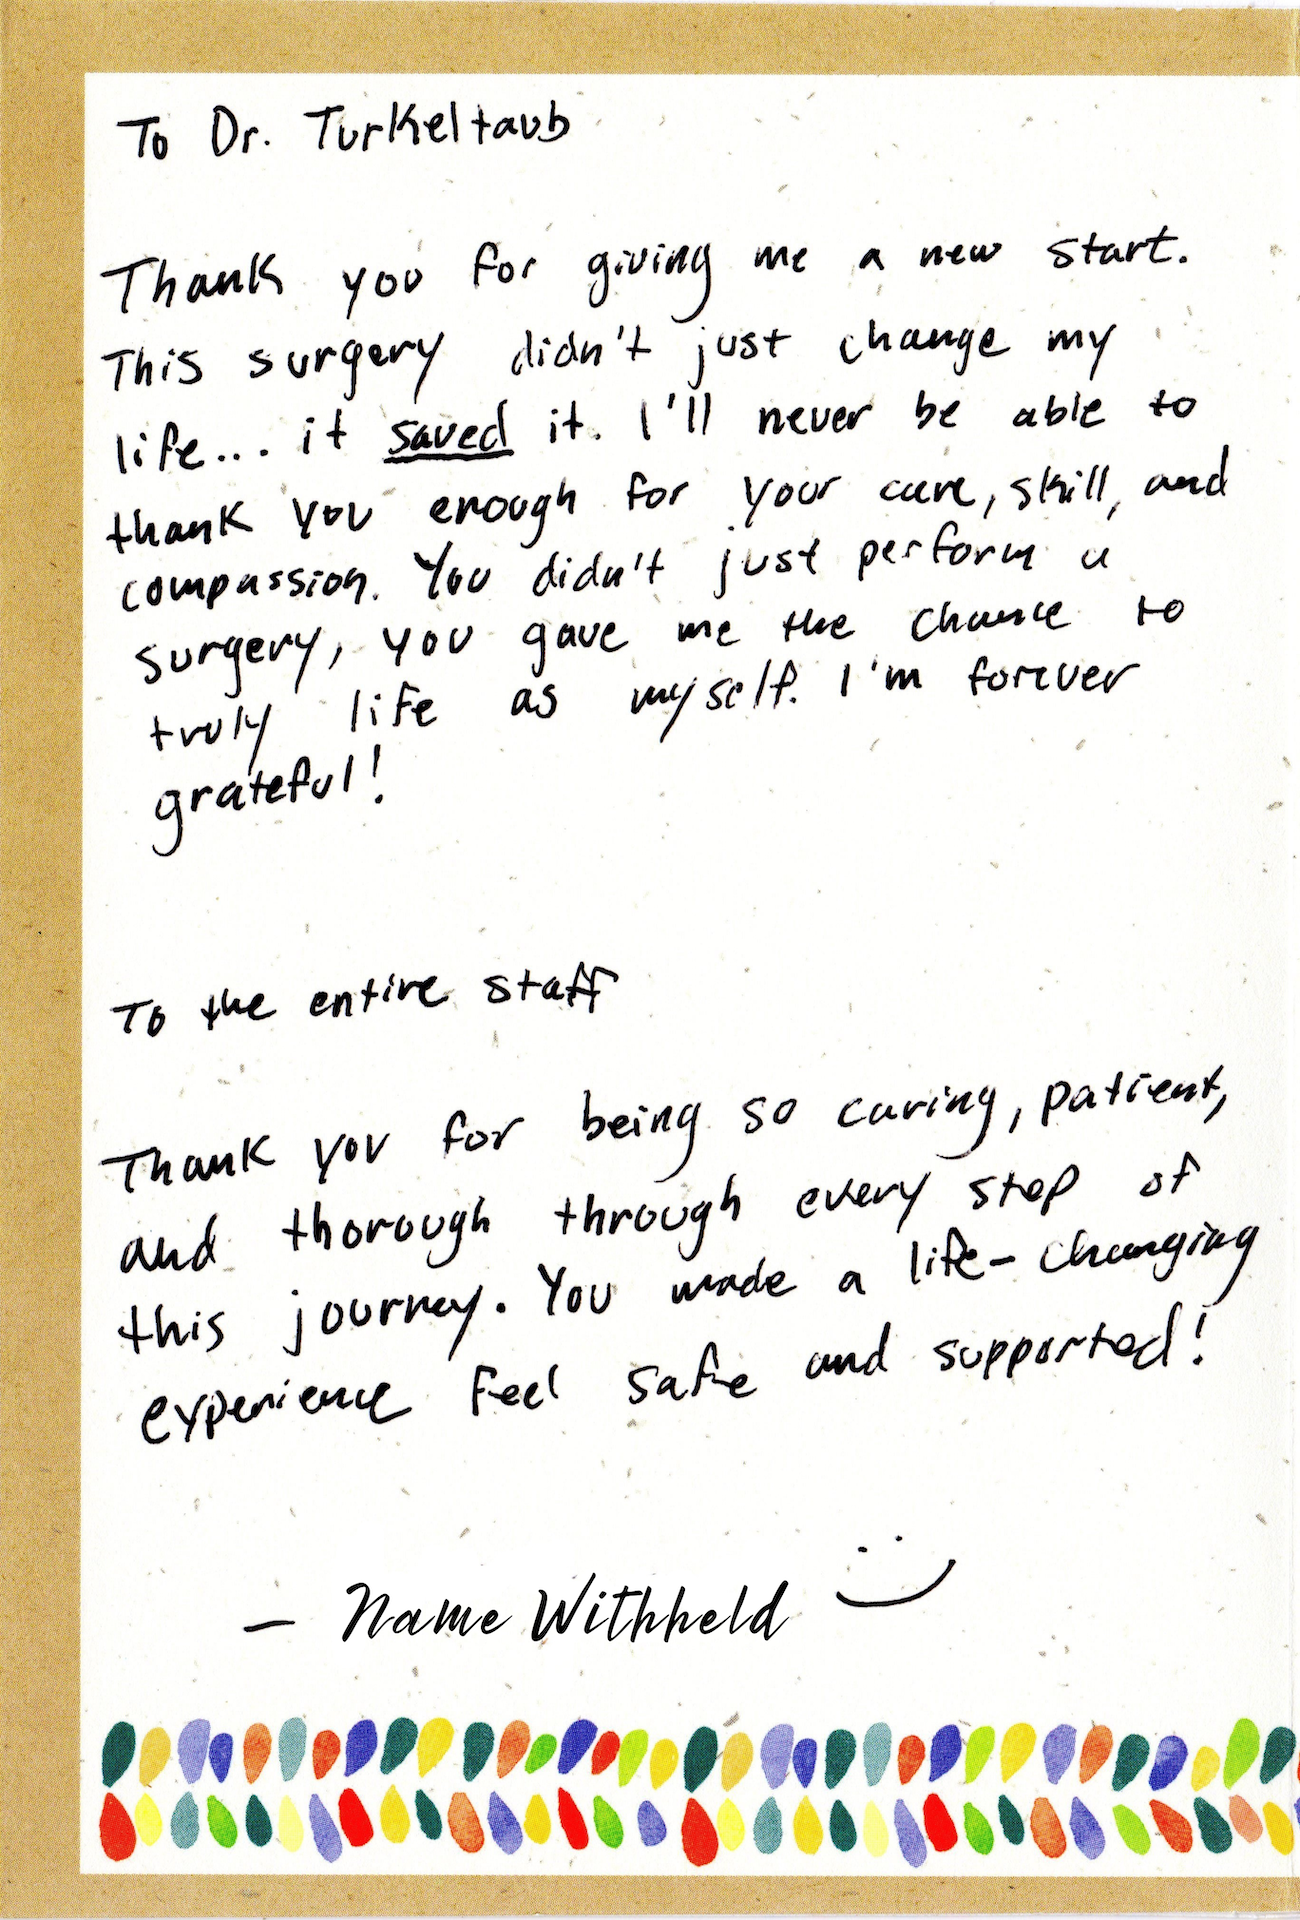 To Dr. Turkeltaub
Thank you for giving me a new start.
This surgery didn't just change my
life... it saved it. I'll never be able to
thank you enough for your care, skill, and
compassion. You didn't just perform a
surgery, you gave me the chance to
truly life as myself. I'm forever
grateful!
To the entire staff
Thank you for being so caring, patient,
and thorough through every step of
this journey. You made a life-changing
experience feel safe and supported!
- Name Withheld